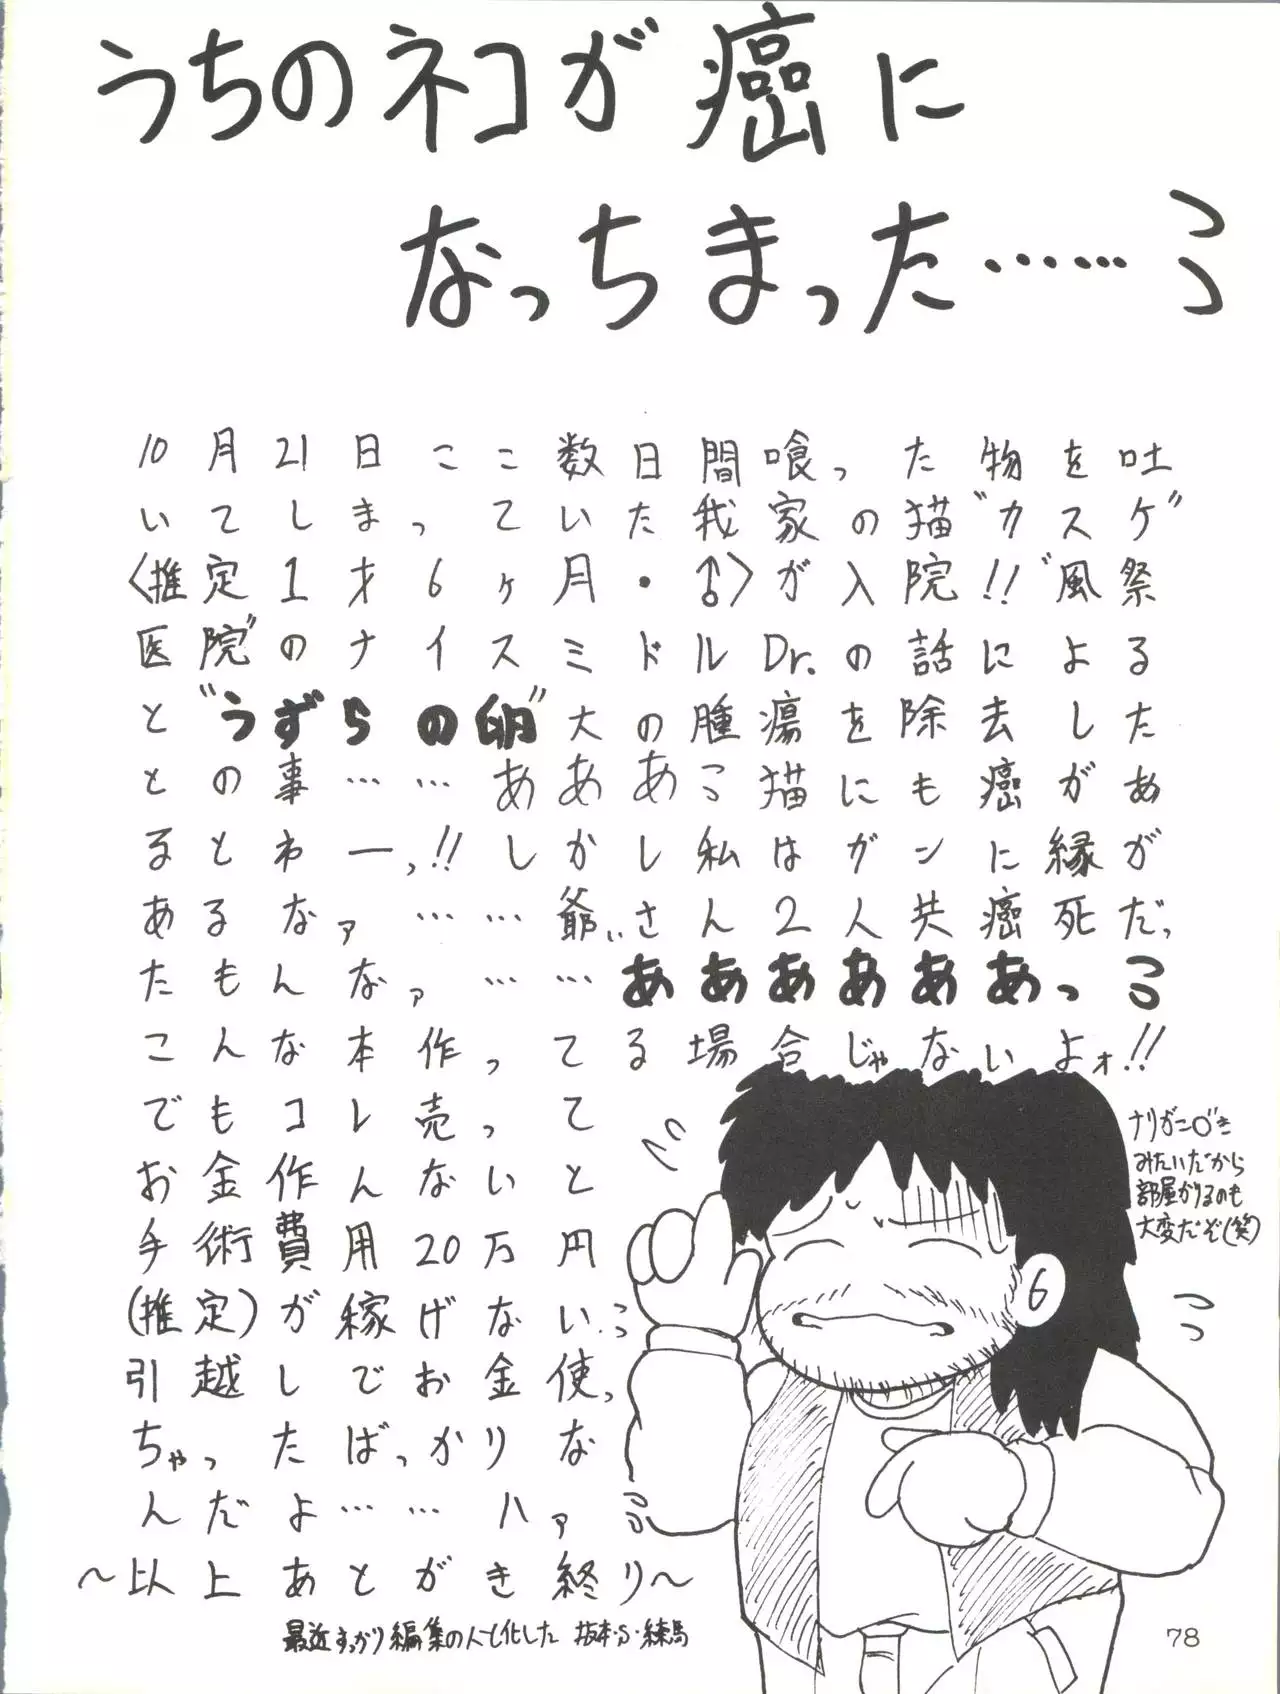 うちのネコが癌に
なっちまった……
10月21日ここ数日間喰った物を吐
いてしまっていた我家の猫“カスケ”
〈推定1才6ヶ月・♂〉が入院!!“風祭
医院”のナイスミドルDr.の話による
と“うずらの卵”大の腫瘍を除去した
との事……あああ猫にも癌があ
るとわーっ!!しかし私はガンに縁が
あるなァ……爺ぃさん2人共癌死だっ
たもんなァ……ああああああっ
こんな本作ってる場合じゃないよォ!!
でもコレ売って
お金作んないと
手術費用20万円
(推定)が稼げない
引越しでお金使っ
ちゃったばっかりな
んだよ……ハァ
〜以上あとがき終り〜
最近すっかり編集の人と化した 坂本・S・練馬
みたいだから
部屋かりるのも
大変だぞ(笑)
78